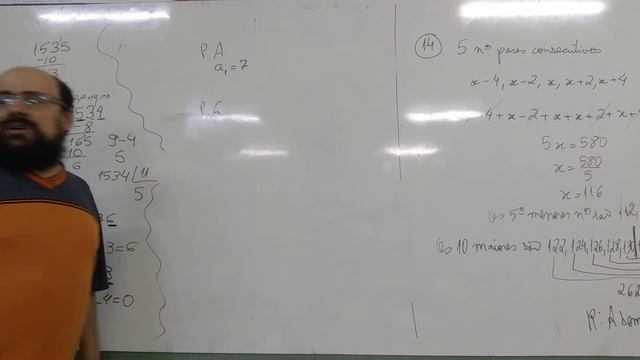 1535
-10
534
-8
165
10
6
9-4
5
1534 11
5
6
3=6
-4=0
P.A.
a₁=7
P.G
14 5 nº pares consecutivos
x-4, x-2, x, x+2, x+4
4+x-2+x+x+2+x+
5x=580
x=580/5
x=116
Os 5º menores nº são 112,
Os 10 maiores são 122, 124, 126, 128, 130
262
R: A som